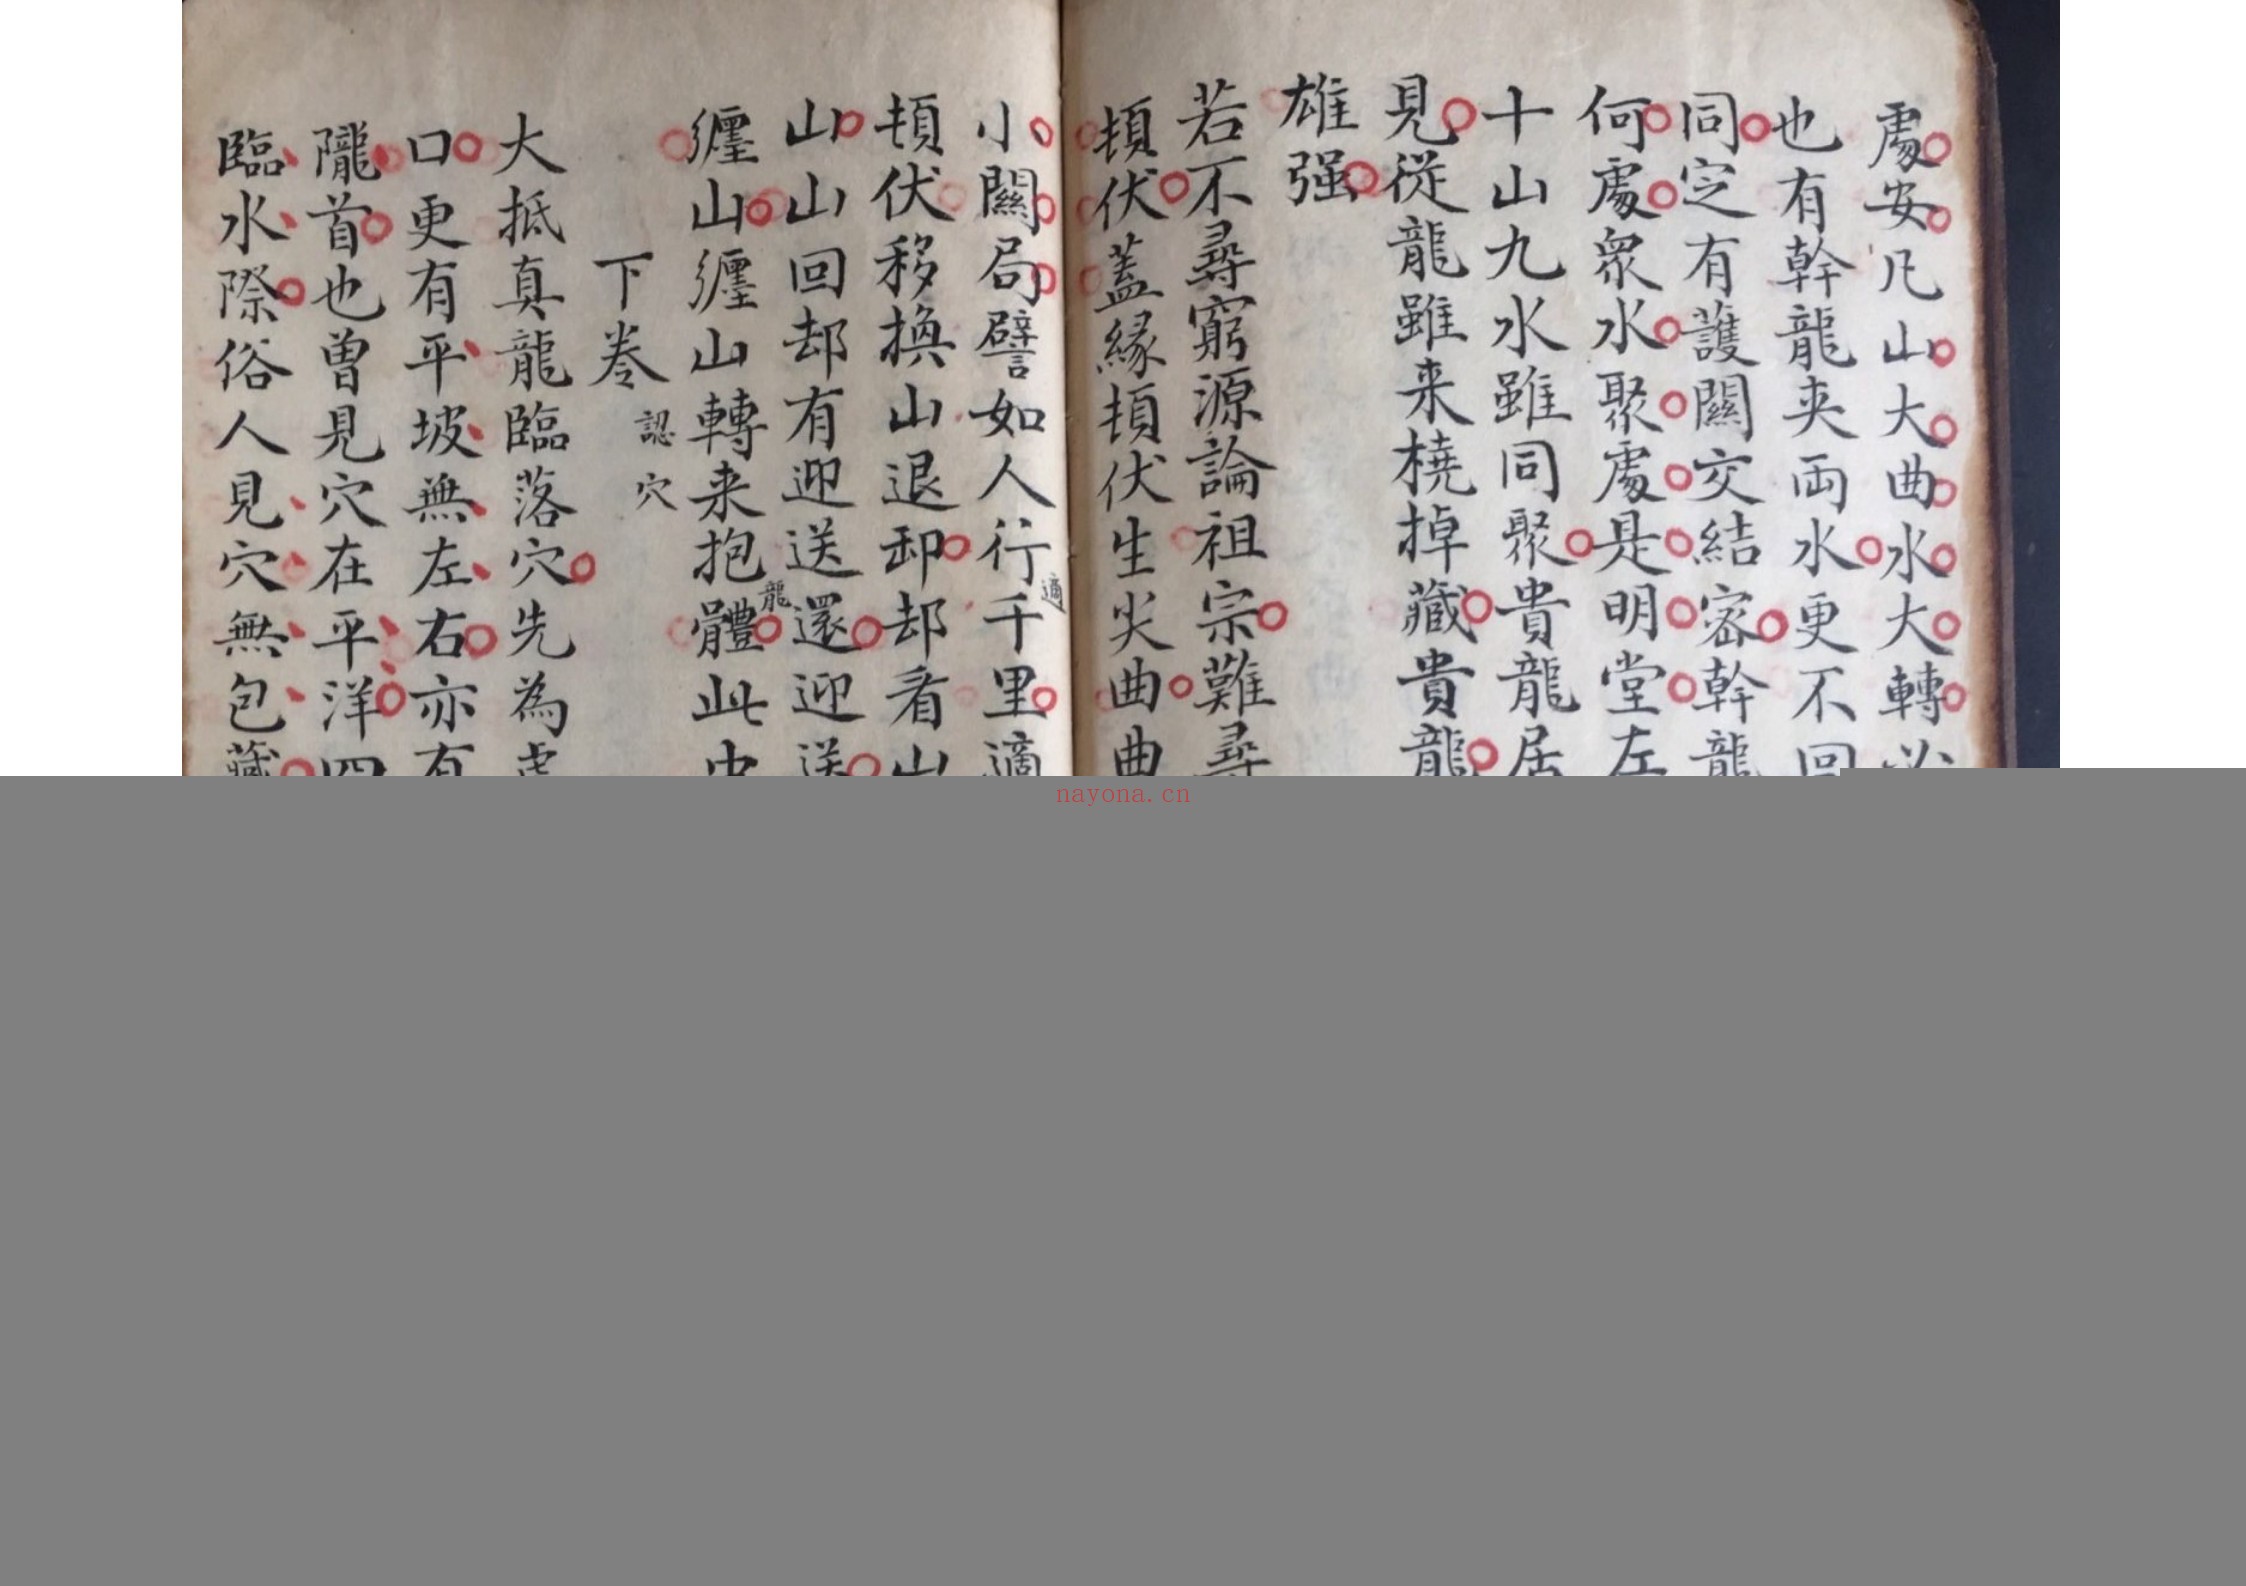 處安凡山大曲水大轉
也有幹龍夾両水更不回
同定有護關交結密幹龍
何處衆水聚處是明堂左
十山九水雖同聚貴龍居
見從龍雖来橈掉藏貴龍
雄强
若不尋窮源論祖宗難尋
頓伏蓋緣頓伏生尖曲曲
小關局譬如人行千里適
適
頓伏移換山退卸却看出
山山回却有迎送還迎送
龍
纏山纏山轉来抱體此
下卷
認穴
大抵真龍臨落穴先為
口更有平坡無左右亦有
隴首也曾見穴在平洋四
臨水際俗人見穴無包藏
nayona.cn